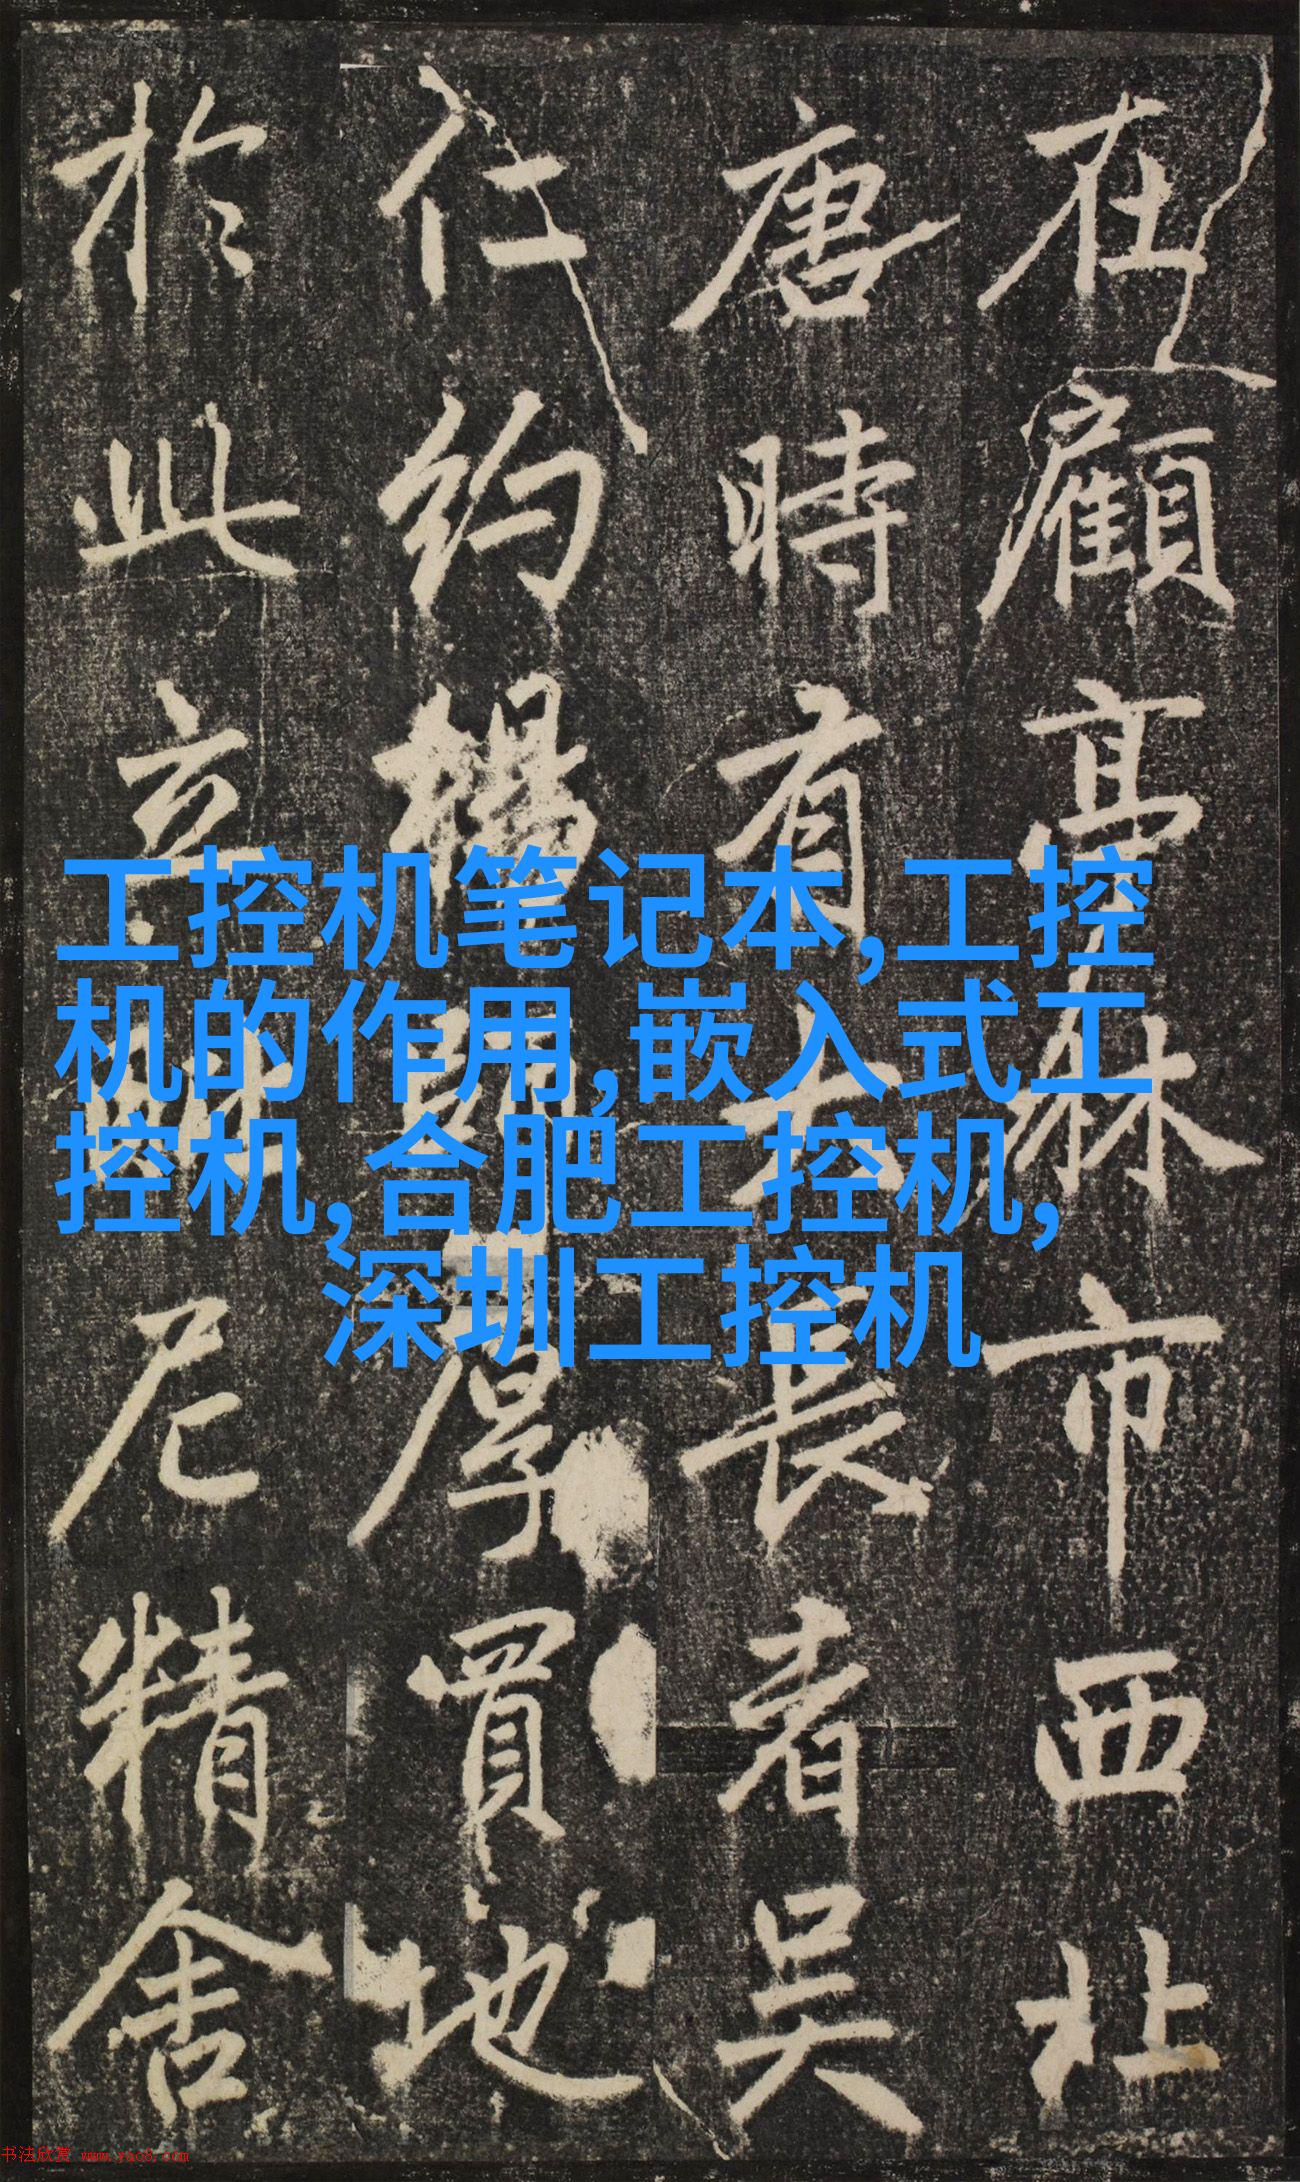 在顧亭林市西北
唐時有大長者吳
仁約厚買地
於此立尼精舍
工控机笔记本,工控
机的作用,嵌入式工
控机,合肥工控机,
深圳工控机
书法欣赏 www.yac8.com